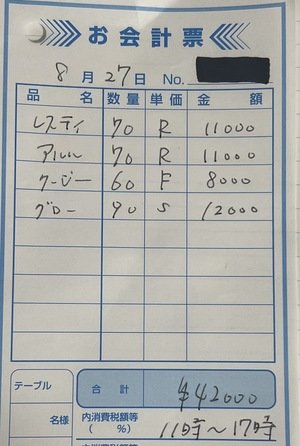 お会計票
8月27日 No.
品名 数量 単価 金額
レスティ 70 R 11000
アルル 70 R 11000
クージー 60 F 8000
グロー 90 S 12000
テーブル
合計 ¥42000
名様
内消費税額等
( %)
11時～17時